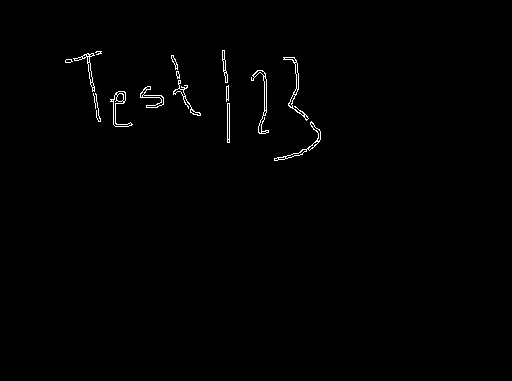 Test 123